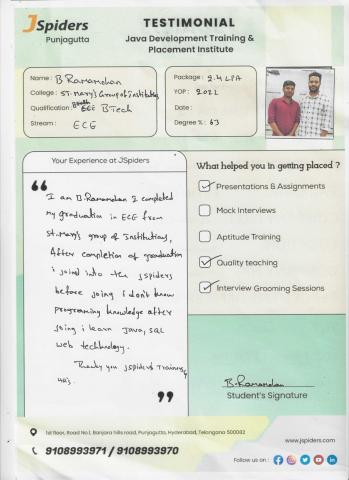 JSpiders
Punjagutta
TESTIMONIAL
Java Development Training &
Placement Institute
Name : B Ramamohan
College : ST. Mary's Group of Institutions
Qualification : BTech
Stream : ECE
Package : 2.4 LPA
YOP : 2022
Date :
Degree % : 63
Your Experience at JSpiders
“
I am B.Ramamohan I completed
my graduation in ECE from
st.mary's group of Institutions,
After completion of graduation
i joind into the jspiders
before joing i don't know
programing knowledge after
joing i learn Java, SQL
web technology.
Thank you jspiders Training
”
What helped you in getting placed ?
Presentations & Assignments
Mock Interviews
Aptitude Training
Quality teaching
Interview Grooming Sessions
B.Ramamohan
Student's Signature
1st floor, Road No.1, Banjara hills road, Punjagutta, Hyderabad, Telangana 500082
9108993971 / 9108993970
www.jspiders.com
Follow us on :